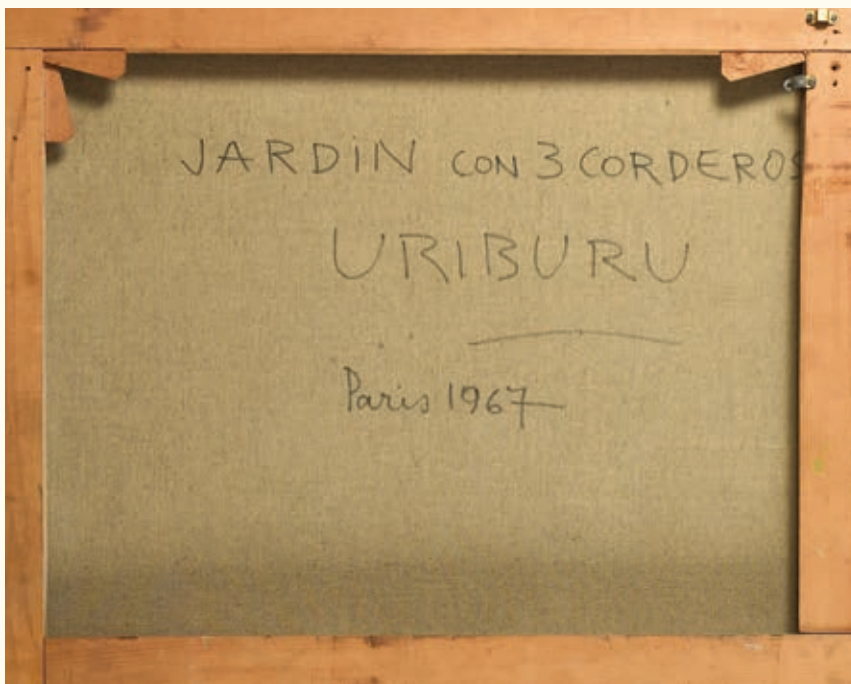 JARDIN CON 3 CORDEROS
URIBURU
Paris 1967